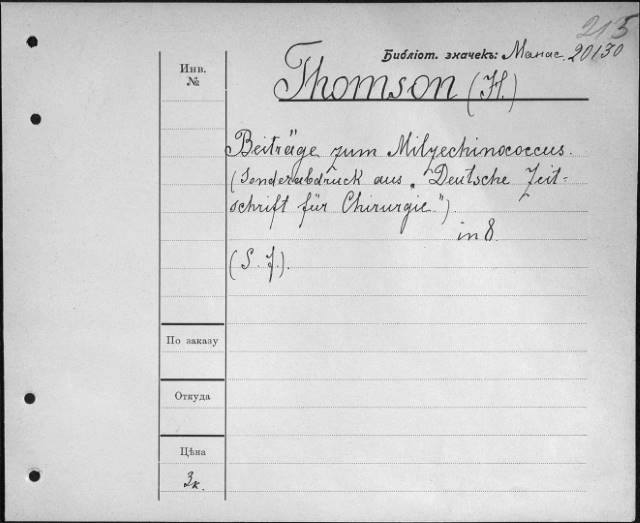 215
Библіот. значекъ: Манас. 20130
Инв.
№
Thomson (H.)
Beiträge zum Milzechinococcus.
(Sonderabdruck aus „Deutsche Zeit=
schrift für Chirurgie.")
in 8.
(S. J.).
По заказу
Откуда
Цѣна
3к.